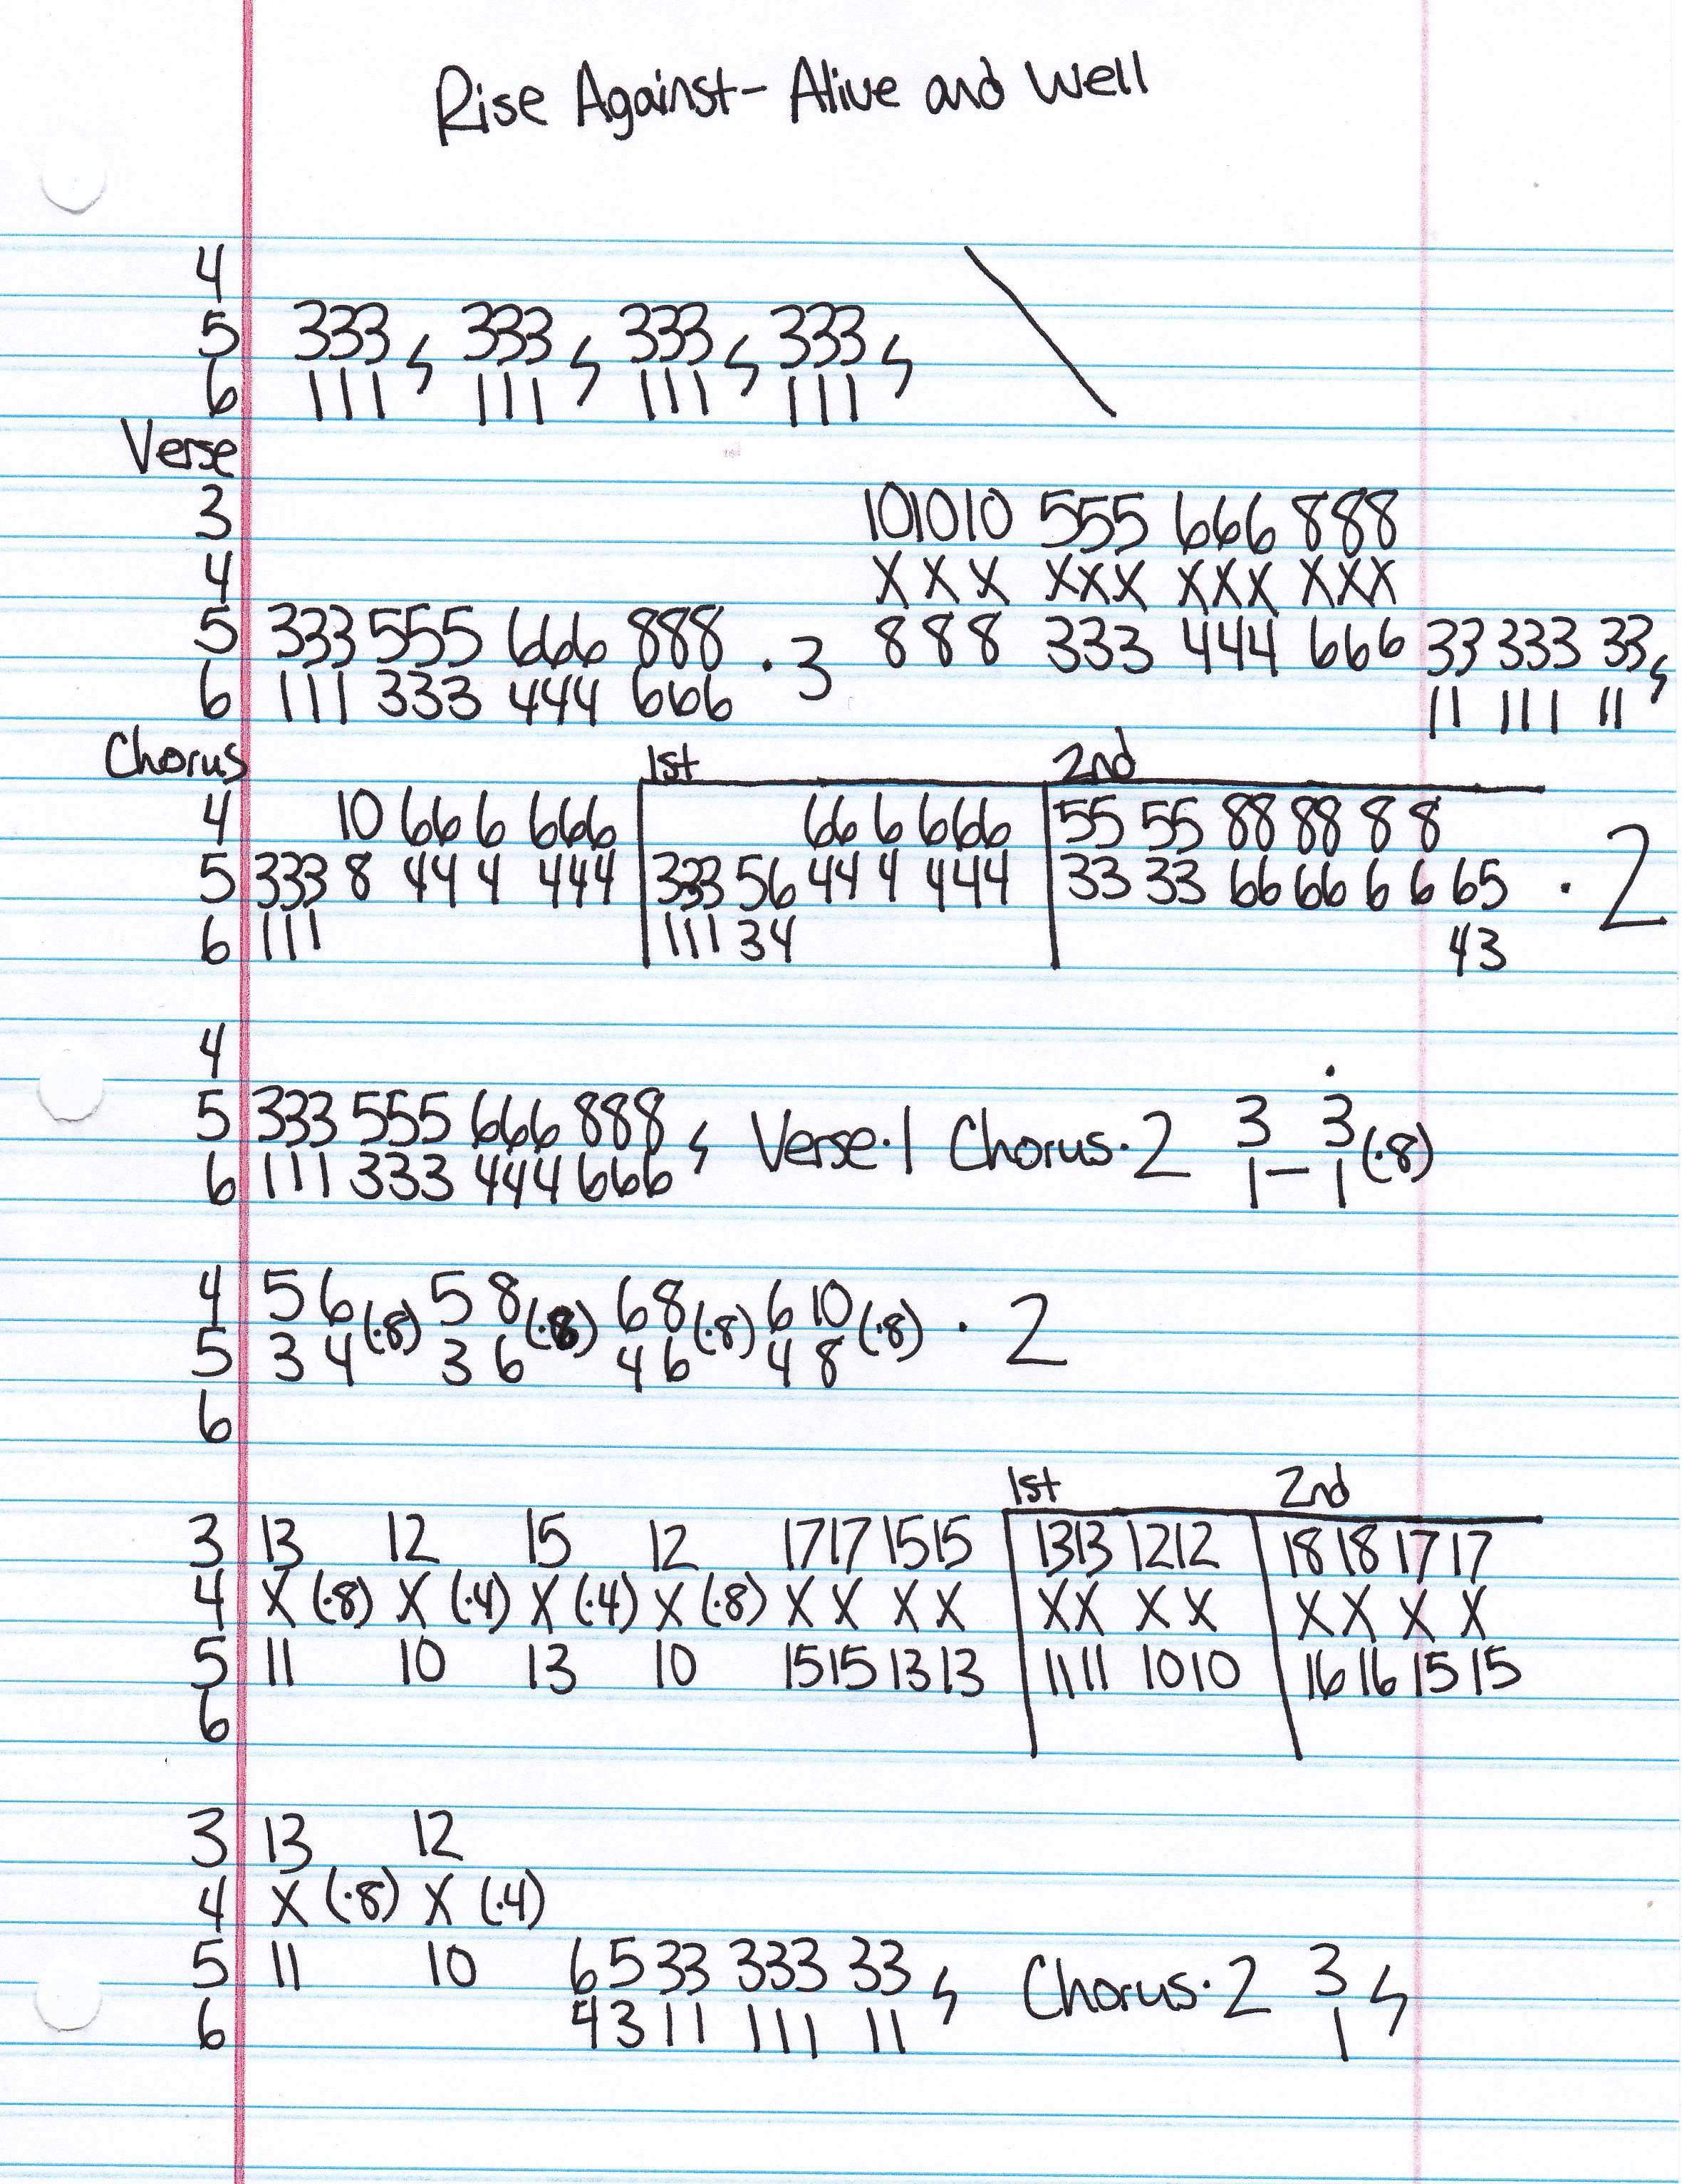 Rise Against- Alive and Well
4
5 333 , 333 , 333 , 333 ,
6 111 111 111 111
Verse
3 101010 555 666 888
4 X X X XXX XXX XXX
5 333 555 666 888 · 3 8 8 8 333 444 666 33 333 33
6 111 333 444 666 11 111 11
Chorus 1st 2nd
4 10 66 6 666 66 6 666 55 55 88 88 8 8
5 333 8 44 4 444 333 56 44 4 444 33 33 66 66 6 6 65 · 2
6 111 111 34 43
4
5 333 555 666 888 Verse·1 Chorus·2 3 3
6 111 333 444 666 1 – 1 (·8)
4 5 6 (·8) 5 8 (·8) 6 8 (·8) 6 10 (·8) · 2
5 3 4 3 6 4 6 4 8
6
1st 2nd
3 13 12 15 12 1717 1515 1313 1212 18 18 17 17
4 X (·8) X (·4) X (·4) X (·8) X X X X XX X X X X X X
5 11 10 13 10 1515 13 13 1111 1010 16 16 15 15
6
3 13 12
4 X (·8) X (·4)
5 11 10 6 5 33 333 33 Chorus·2 3
6 4 3 11 111 11 1